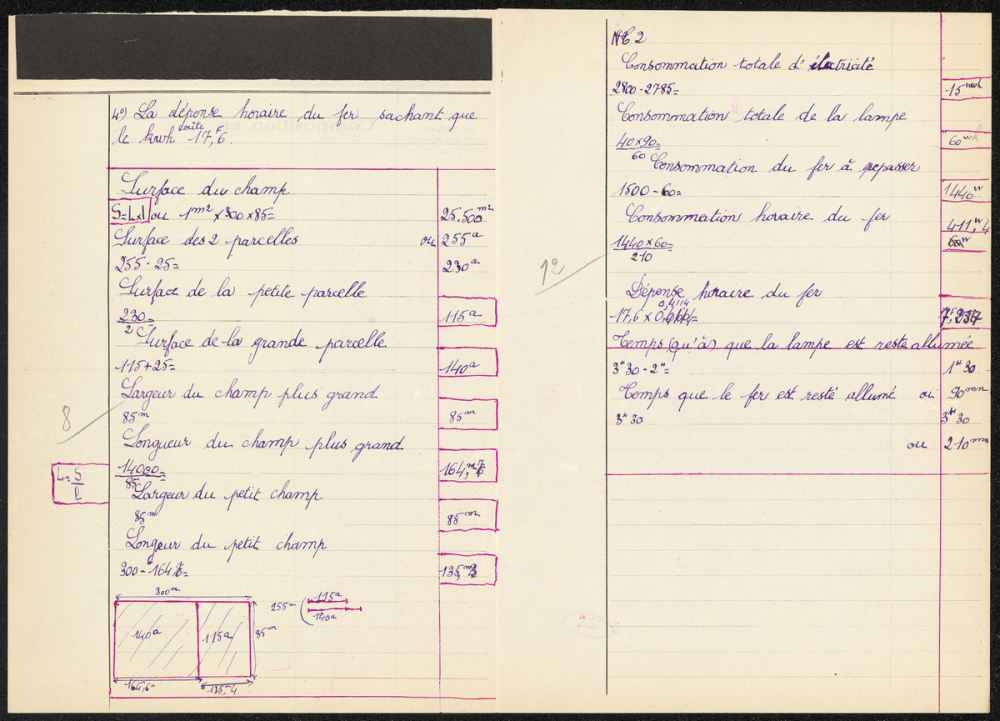 4°) La dépense horaire du fer sachant que
le kwh coûte 17,F6.
Surface du champ
S=L×l ou 1m² × 300 × 85=
25.500m²
Surface des 2 parcelles ou 255a
255 - 25=
230a
Surface de la petite parcelle
230=
2
115a
Surface de la grande parcelle
115+25=
140a
Largeur du champ plus grand
85m
85m
8
Longueur du champ plus grand
14000=
85
164,m7
L=S
l
Largeur du petit champ
85m
85m
Longeur du petit champ
300-164,7=
135,m3
300m
140a
115a
85m
164,6
135,4
255a
115a
140a
N°2
Consommation totale d'électricité
2800-2785=
15hwh
Consommation totale de la lampe
40×90=
60
60wh
Consommation du fer à repasser
1500-60=
1440w
Consommation horaire du fer
1440×60=
210
411,w4
12
Dépense horaire du fer
0,4114
17,6 × =
Temps (qu'à) que la lampe est reste allumée
3h30-2h=
1h30
Temps que le fer est resté allumé ou 90mn
3h30
3h30
ou 210mn